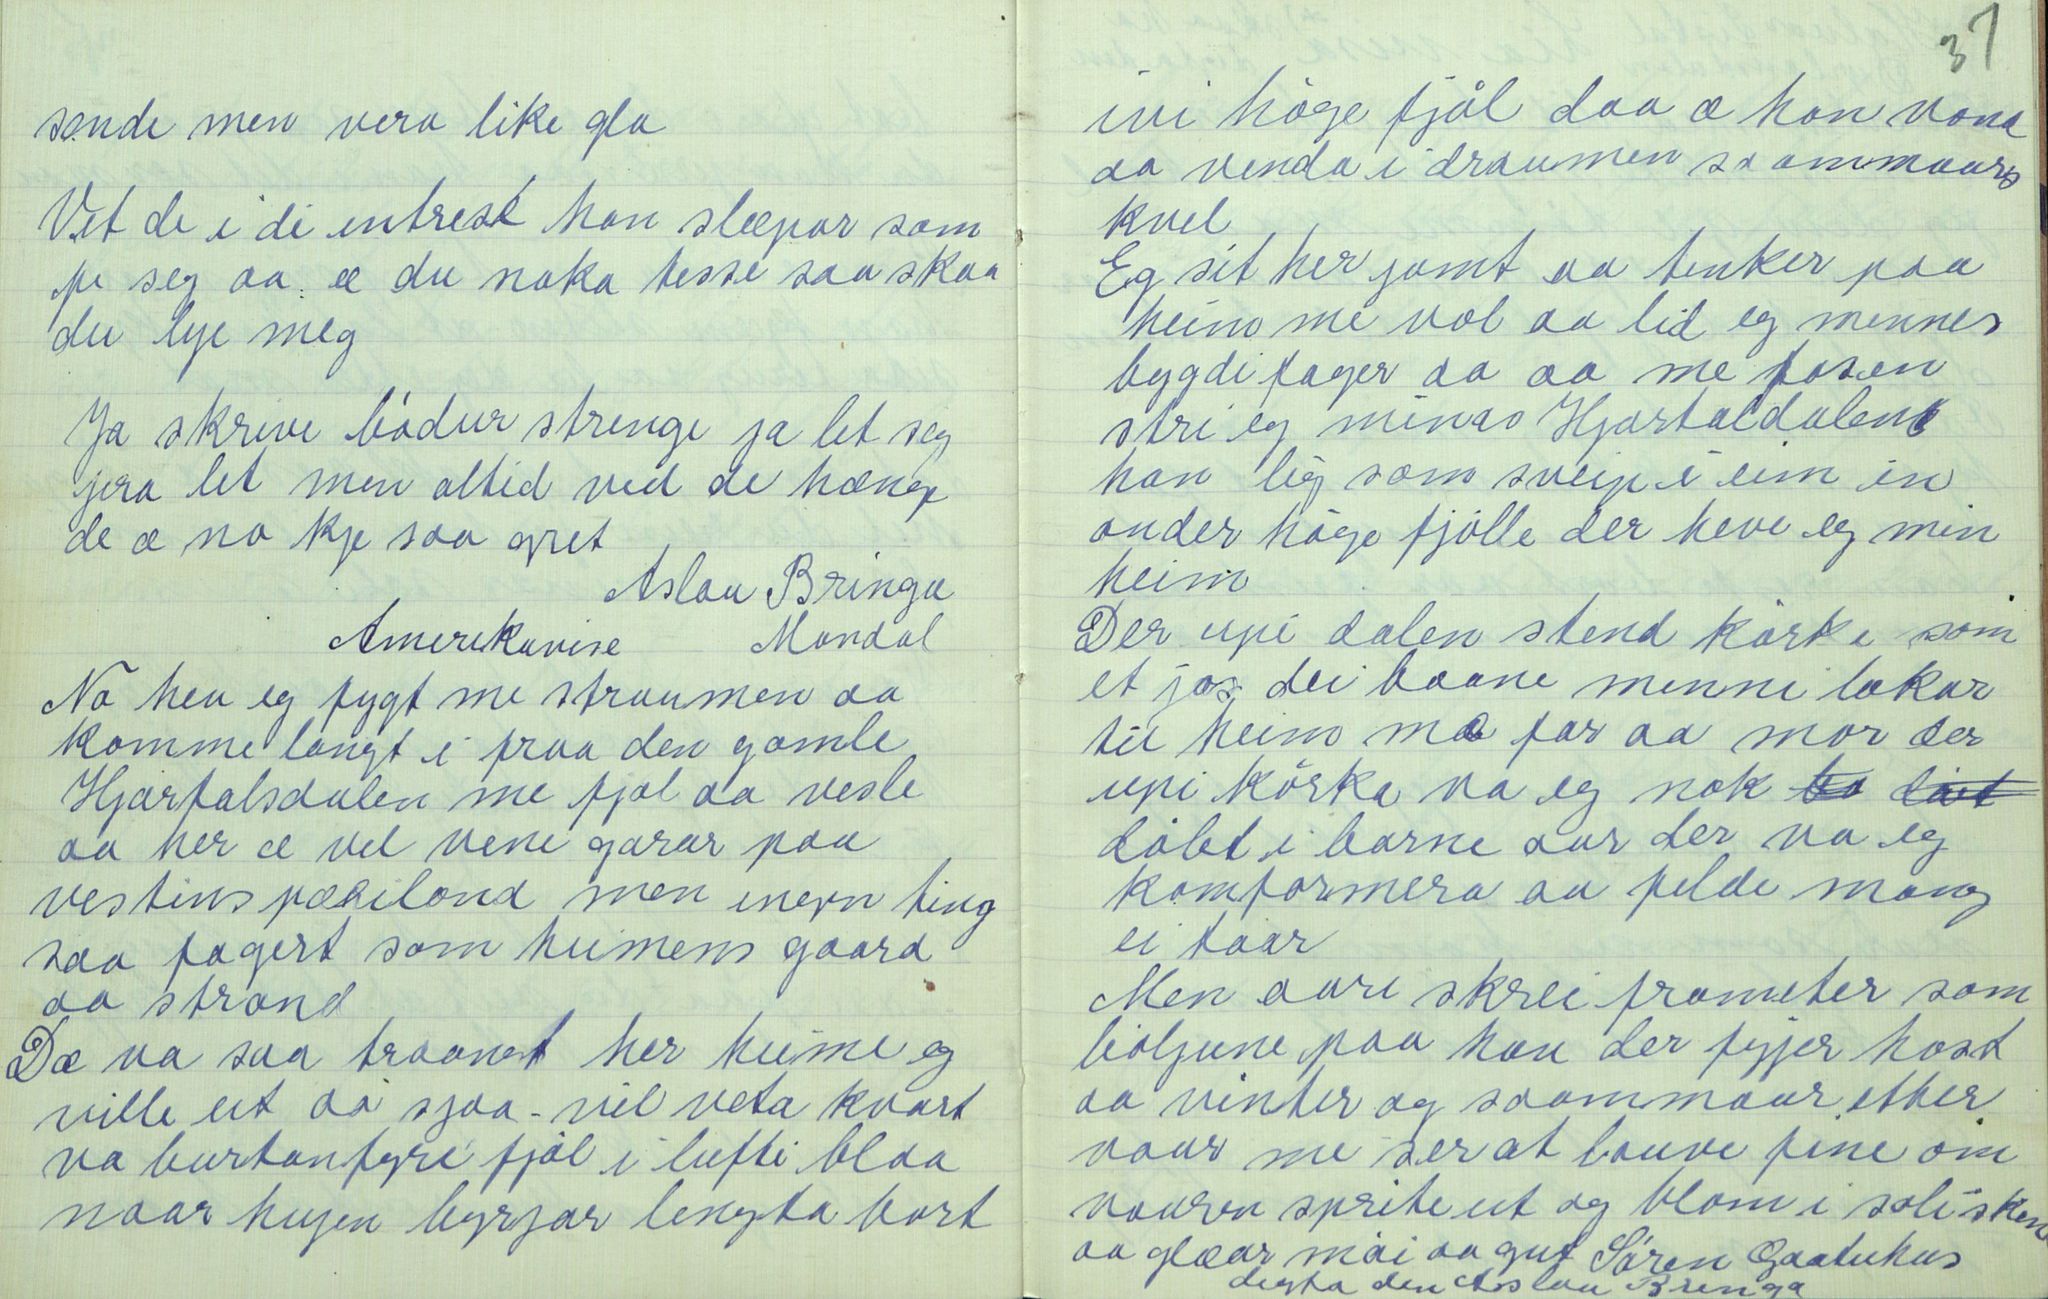 sende men vera like gla
Vet de i di intrest han slæpar som
fe seg aa æ du noka tesse saa skaa
du lye meg
Ja skrive bödur strenge ja let seg
jera let men altid ved de hænge
de æ no kje saa gret
Aslau Bringa
Amerikavise Mandal
No hev eg fygt me straumen aa
komme langt i fraa den gamle
Hjartalsdalen me fjøl aa vesle
aa her æ vel vene garar paa
vestins præriland men ingin ting
saa fagert som heimens gaard
aa strand
Dæ va saa traangt her heime eg
ville ut aa sjaa - vil veta kvart
va burtanfyre fjøl i lufti blaa
naar hugen byrjar lengta bort
37
ivi høge fjøl daa æ han vond
aa venda i draumen saammaars
kvel
Eg sit her jamt aa tenker paa
heim me vol aa lid eg minnes
bygdi fager aa aa me fossen
stri eg minas Hjartaldalen
han lig som sveip i eim in
onder høge fjølle der heve eg min
heim
Der upi dalen stend körke som
et jos dei baane minni lokar
til heim mæ far aa mor der
upi körka va eg nok
döbt i barne aar der va eg
komformera aa felde mang
ei taar
Men aari skrei frameter som
bölgune paa hav der fygjer host
aa vinter og saammaar etter
vaar me ser at lauve fine om
vaaren sprite ut og blom i soliskin
aa glæar möi aa gut Sören Gaatehus
digta den Aslau Bringa